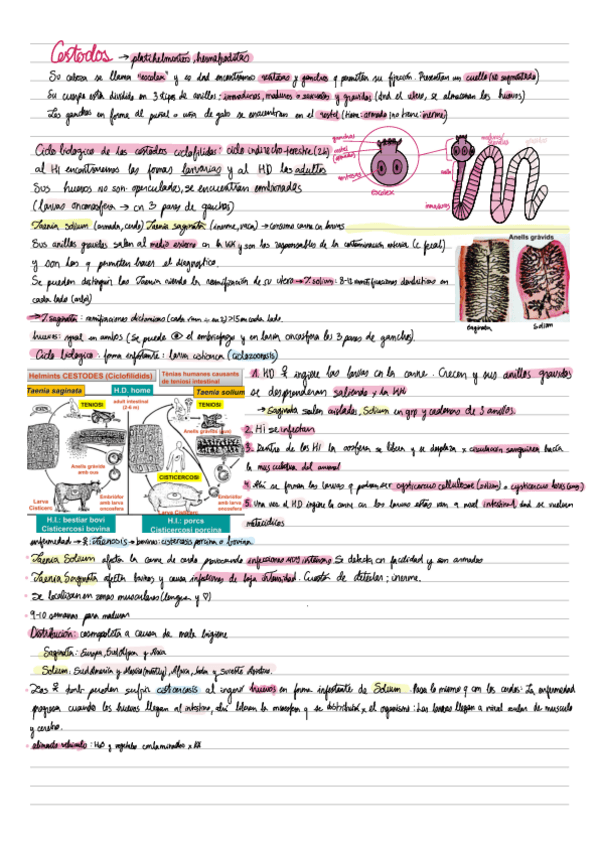 Cestodos → platihelmintos, hermafroditas
Su cabeza se llama "escolex" y es dnd encontramos ventosas y ganchos q permiten su fijación. Presentan un cuello (no segmentado)
Su cuerpo está dividido en 3 tipos de anillos: inmaduros, maduros o sexuales y gravidos (dnd el utero, se almacenan los huevos)
Los ganchos en forma de puñal o uña de gato se encuentran en el rostel (tiene: armado, no tiene: inerme)
Ciclo biologico de los cestodos ciclofilidos: ciclo indirecto terestre (2h)
al HI encontraremos las formas larvarias y al HD los adultos
Sus huevos no son operculados, se encuentran embrionados
(larvas oncosfera → con 3 pares de ganchos)
ganchos
rostel
ventosas
escolex
maduros/
sexuales
cuello
inmaduros
Taenia solium (armada, cerdo) Taenia saginata (inerme, vaca) → consumo carne con larvas
Sus anillos gravidos salen al medio externo con la y son los responsables de la contaminación externa (c. fecal)
y son los q permiten hacer el diagnostico.
Se pueden distinguir las Taenia viendo la ramificación de su utero → T. solium: 8-12 ramificaciones dendriticas en
cada lado
→ T. saginata: ramificaciones dicotomicas (cada rama en 2) >15 en cada lado.
huevos: igual en ambos (Se puede el embriofago y en larva oncosfera los 3 pares de ganchos).
Anells gràvids
Saginata
Solium
Ciclo biologico: forma infestante: larva cisticerca (ciclozoonosis)
Helmints CESTODES (Ciclofilídids)
Tènies humanes causants
de teniosi intestinal
Taenia saginata
H.D. home
Taenia solium
TENIOSI
adult intestinal
(2-6 m)
TENIOSI
Anells gràvids
Anells gràvids
amb ous
CISTICERCOSI
Larva
Cisticerc
Embriòfor
amb larva
oncosfera
Larva Cisticerc
Embriòfor
amb larva
oncosfera
H.I.: bestiar bovi
Cisticercosi bovina
H.I.: porcs
Cisticercosi porcina
1. HD ingiere las larvas en la carne. Crecen y sus anillos gravidos
se desprenderan saliendo x la
→ saginata salen aislados, Solium en grp y cadenas de 3 anillos.
2. HI se infectan
3. Dentro de los HI la oncosfera se libera y se desplaza x circulación sanguinea hacia
la musculatura del animal
4. Ahí se forman las larvas q pueden ser cysticercus cellulosae (solium) o cysticercus bovis
5. Una vez el HD ingiere la carne con las larvas estas van a nivel intestinal dnd se vuelven
enfermedad → Taeniosis → bovinos: cistercosis porcina o bovina.
Taenia Solium afecta la carne de cerdo provocando infecciones muy intensas. Se detecta con facilidad y son armados
Taenia Saginata afecta bovinos y causa infecciones de baja intensidad. Cuesta de detectar; inerme.
Se localizan en zonas musculares (lengua y ♡)
9-10 semanas para madurar
Distribución: cosmopolita a causa de mala higiene
Saginata: Europa, y Asia
Solium: Sudamerica y Mexico, Africa, India y sureste
Los tmb pueden sufrir cistercosis al ingerir huevos en forma infestante de Solium. Pasa lo mismo q con los cerdos: La enfermedad
progresa cuando los huevos llegan al intestino, ahí liberan la oncosfera q se distribuirá x el organismo: Las larvas llegan a nivel de musculo
y cerebro.
alimento vehiculo: H2O y vegetales contaminados x